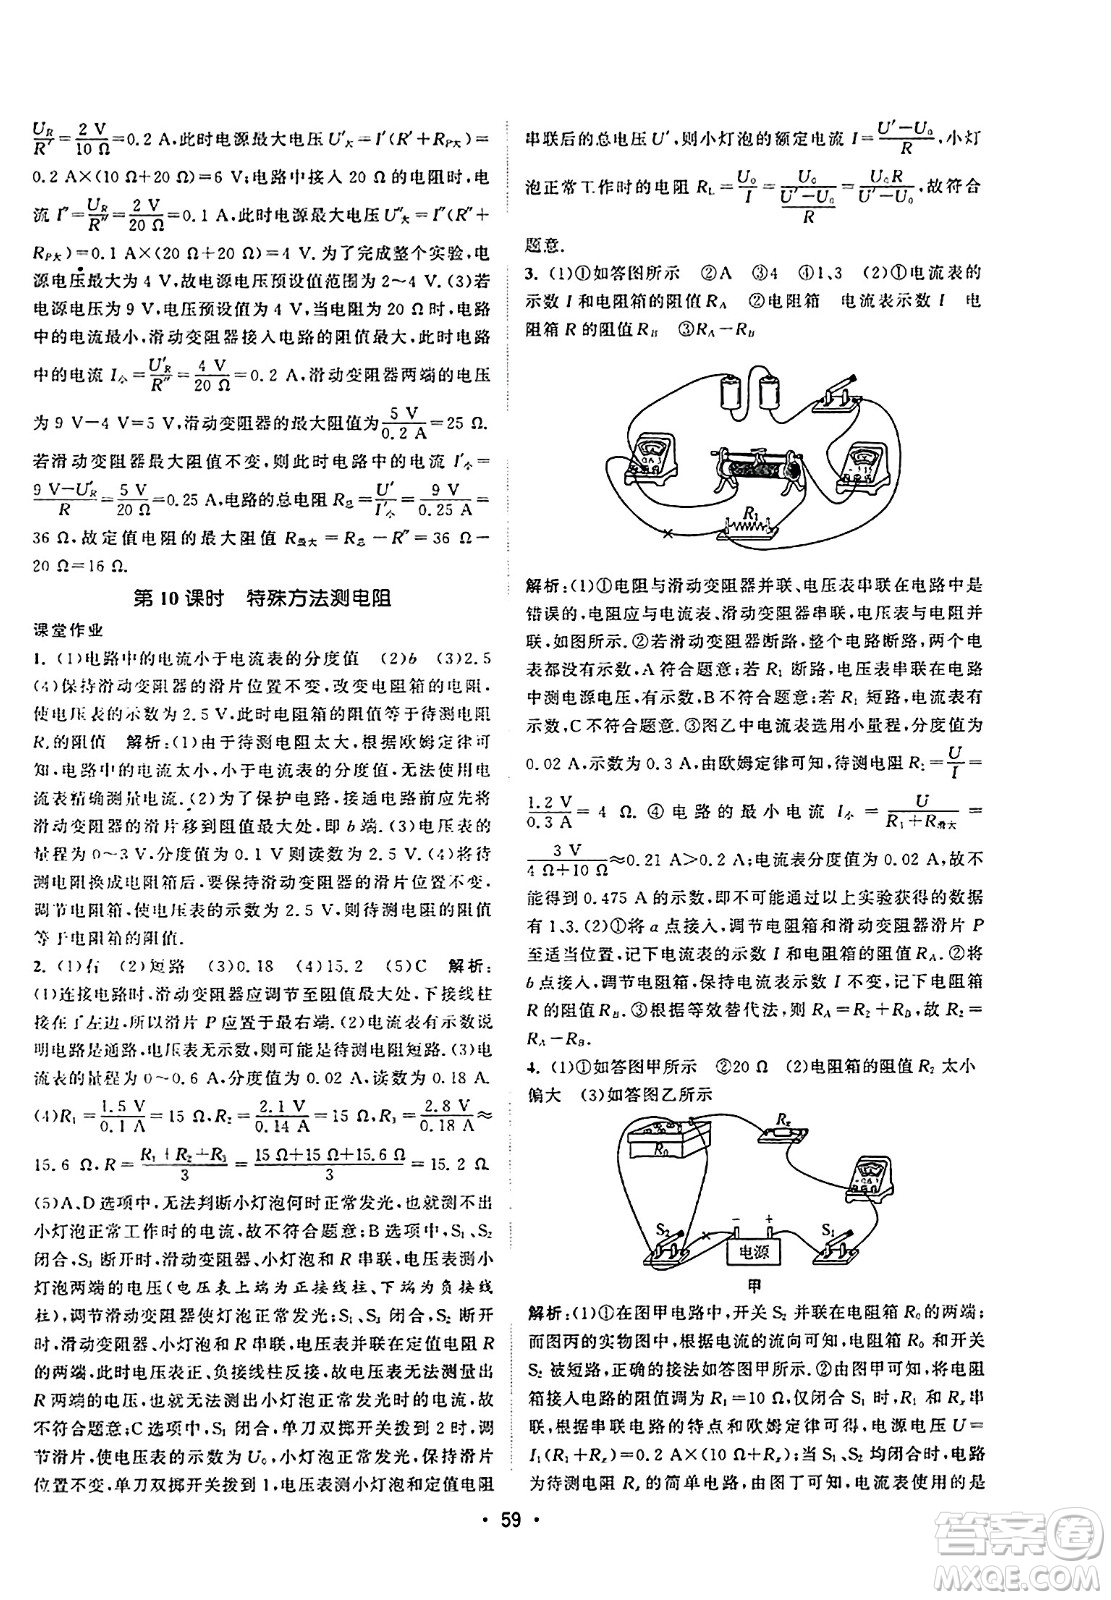 U_R/R′=2 V/10 Ω=0.2 A,此时电源最大电压U′大=I′(R′+R_P大)=
0.2 A×(10 Ω+20 Ω)=6 V;电路中接入 20 Ω 的电阻时,电
流 I″=U_R/R″=2 V/20 Ω=0.1 A,此时电源最大电压U″大=I″(R″+
R_P大)=0.1 A×(20 Ω+20 Ω)=4 V.为了完成整个实验,电
源电压最大为 4 V,故电源电压预设值范围为2~4 V.(3)若
电源电压为 9 V,电压预设值为 4 V,当滑片在最右端时,电路
中的电流最小,滑动变阻器接入电路的阻值最大,此时电路
中的电流 I小=U′_R/R″=4 V/20 Ω=0.2 A,滑动变阻器两端的电压
为 9 V−4 V=5 V,滑动变阻器的最大阻值为5 V/0.2 A=25 Ω.
若滑动变阻器的最大阻值不变,则此时电路中的电流 I′小=
9 V−U′_R/R=5 V/20 Ω=0.25 A,电路的总电阻 R总=U′/I′小=9 V/0.25 A=
36 Ω,故定值电阻的最大阻值 R最大=R总−R″=36 Ω−
20 Ω=16 Ω.
第 10 课时 特殊方法测电阻
课堂作业
1. (1)电路中的电流小于电流表的分度值 (2)b (3)2.5
(4)保持滑动变阻器的滑片位置不变,改变电阻箱的电阻,
使电压表的示数为 2.5 V,此时电阻箱的阻值等于待测电阻
Rx的阻值 解析:(1)由于待测电阻太大,根据欧姆定律可
知,电路中的电流太小,小于电流表的分度值,无法使用电
流表精确测量电流.(2)为了保护电路,接通电路前应先将
滑动变阻器的滑片移到阻值最大处,即 b 端.(3)电压表的
量程为 0~3 V,分度值为 0.1 V 则读数为 2.5 V.(4)将待
测电阻换成电阻箱后,要保持滑动变阻器的滑片位置不变,
调节电阻箱,使电压表的示数为 2.5 V,则待测电阻的阻值
等于电阻箱的阻值.
2. (1)右 (2)短路 (3)0.18 (4)15.2 (5)C 解析:
(1)连接电路时,滑动变阻器应调节至阻值最大处,下接线柱
接在了左边,所以滑片 P 应置于最右端.(2)电流表有示数说
明电路是通路,电压表无示数,则可能是待测电阻短路.(3)电
流表的量程为 0~0.6 A,分度值为 0.02 A,示数为 0.18 A.
(4)R₁=1.5 V/0.1 A=15 Ω,R₂=2.1 V/0.14 A=15 Ω,R₃=2.8 V/0.18 A≈
15.6 Ω,R=R₁+R₂+R₃/3=15 Ω+15 Ω+15.6 Ω/3=15.2 Ω.
(5)A、D 选项中,无法判断小灯泡何时正常发光,就测不出
小灯泡正常工作时的电流,故不符合题意;B 选项中,S₁、S₂
闭合,S₃ 断开时,滑动变阻器、小灯泡和 R 串联,电压表测小
灯泡两端的电压(电压表上端为正接线柱、下端为负接线
柱),调节滑动变阻器使灯泡正常发光;S₁、S₃ 闭合,S₂ 断开
时,滑动变阻器、小灯泡和 R 串联,电压表并联在定值电阻 R
的两端,此时电压表正、负接线柱反接,故电压表无法测量出
R 两端的电压,也就无法测出小灯泡正常发光时的电流,故不
符合题意;C 选项中,S₁ 闭合,单刀双掷开关拨到 2 时,先调
节滑片,使电压表的示数为 U₀,小灯泡正常发光,保持滑片
位置不变,单刀双掷开关拨到 1,电压表测小灯泡和定值电阻
串联后的总电压 U′,则小灯泡的额定电流 I=U′−U₀/R,小灯
泡正常工作时的电阻 R_L=U₀/I=U₀/(U′−U₀/R)=U₀R/U′−U₀,故符合
题意.
3. (1)①如答图所示 ②A ③4 ④1、3 (2)①电流表的
示数 I 和电阻箱的阻值 R_A ②电阻箱 电流表示数 I 电
阻箱 R 的阻值 R_B ③R_A−R_B
R₁
解析:(1)①电阻与滑动变阻器并联、电压表串联在电路中是
错误的,电阻应与电流表、滑动变阻器串联,电压表与电阻并
联,如图所示.②若滑动变阻器断路,整个电路断路,两个电
表都没有示数,A 符合题意;若 R₁ 断路,电压表串联在电路
中测电源电压,有示数,B 不符合题意;若 R₁ 短路,电流表有
示数,C 不符合题意.③图乙中电流表选用小量程,分度值为
0.02 A,示数为 0.3 A,由欧姆定律可知,待测电阻 R₁=U/I=
1.2 V/0.3 A=4 Ω. ④电路的最小电流 I小=U/R₁+R滑大=
3 V/4 Ω+10 Ω≈0.21 A>0.2 A;电流表分度值为 0.02 A,故不
能得到 0.475 A 的示数,即不可能通过以上实验获得的数据
有 1、3.(2)①将 a 点接入,调节电阻箱和滑动变阻器滑片 P
至适当位置,记下电流表的示数 I 和电阻箱的阻值 R_A.②将
b 点接入,调节电阻箱,保持电流表示数 I 不变,记下电阻箱
R 的阻值 R_B.③根据等效替代法,则 R_A=R₂+R_B,故 R₂=
R_A−R_B.
4. (1)①如答图甲所示 ②20 Ω (2)电阻箱的阻值 R₂ 太小
偏大 (3)如答图乙所示
R₀
Rx
S₂
− +
电源
S₁
甲
解析:(1)①在图甲电路中,开关 S₂ 并联在电阻箱 R₀的两端;
而图丙的实物图中,根据电流的流向可知,电阻箱 R₀ 和开关
S₂ 被短路,正确的接法如答图甲所示.②由图甲可知,电阻
箱接入电路的阻值调为 R₁=10 Ω,仅闭合 S₁ 时,R₁ 和 Rx串
联,根据串联电路的特点和欧姆定律可得,电源电压 U=
I₁(R₁+Rx)=0.2 A×(10 Ω+Rx);当 S₁、S₂ 均闭合时,电路
为待测电阻 Rx 的简单电路,由图丁可知,电流表使用的是
· 59 ·
答案圈
MXQE.COM